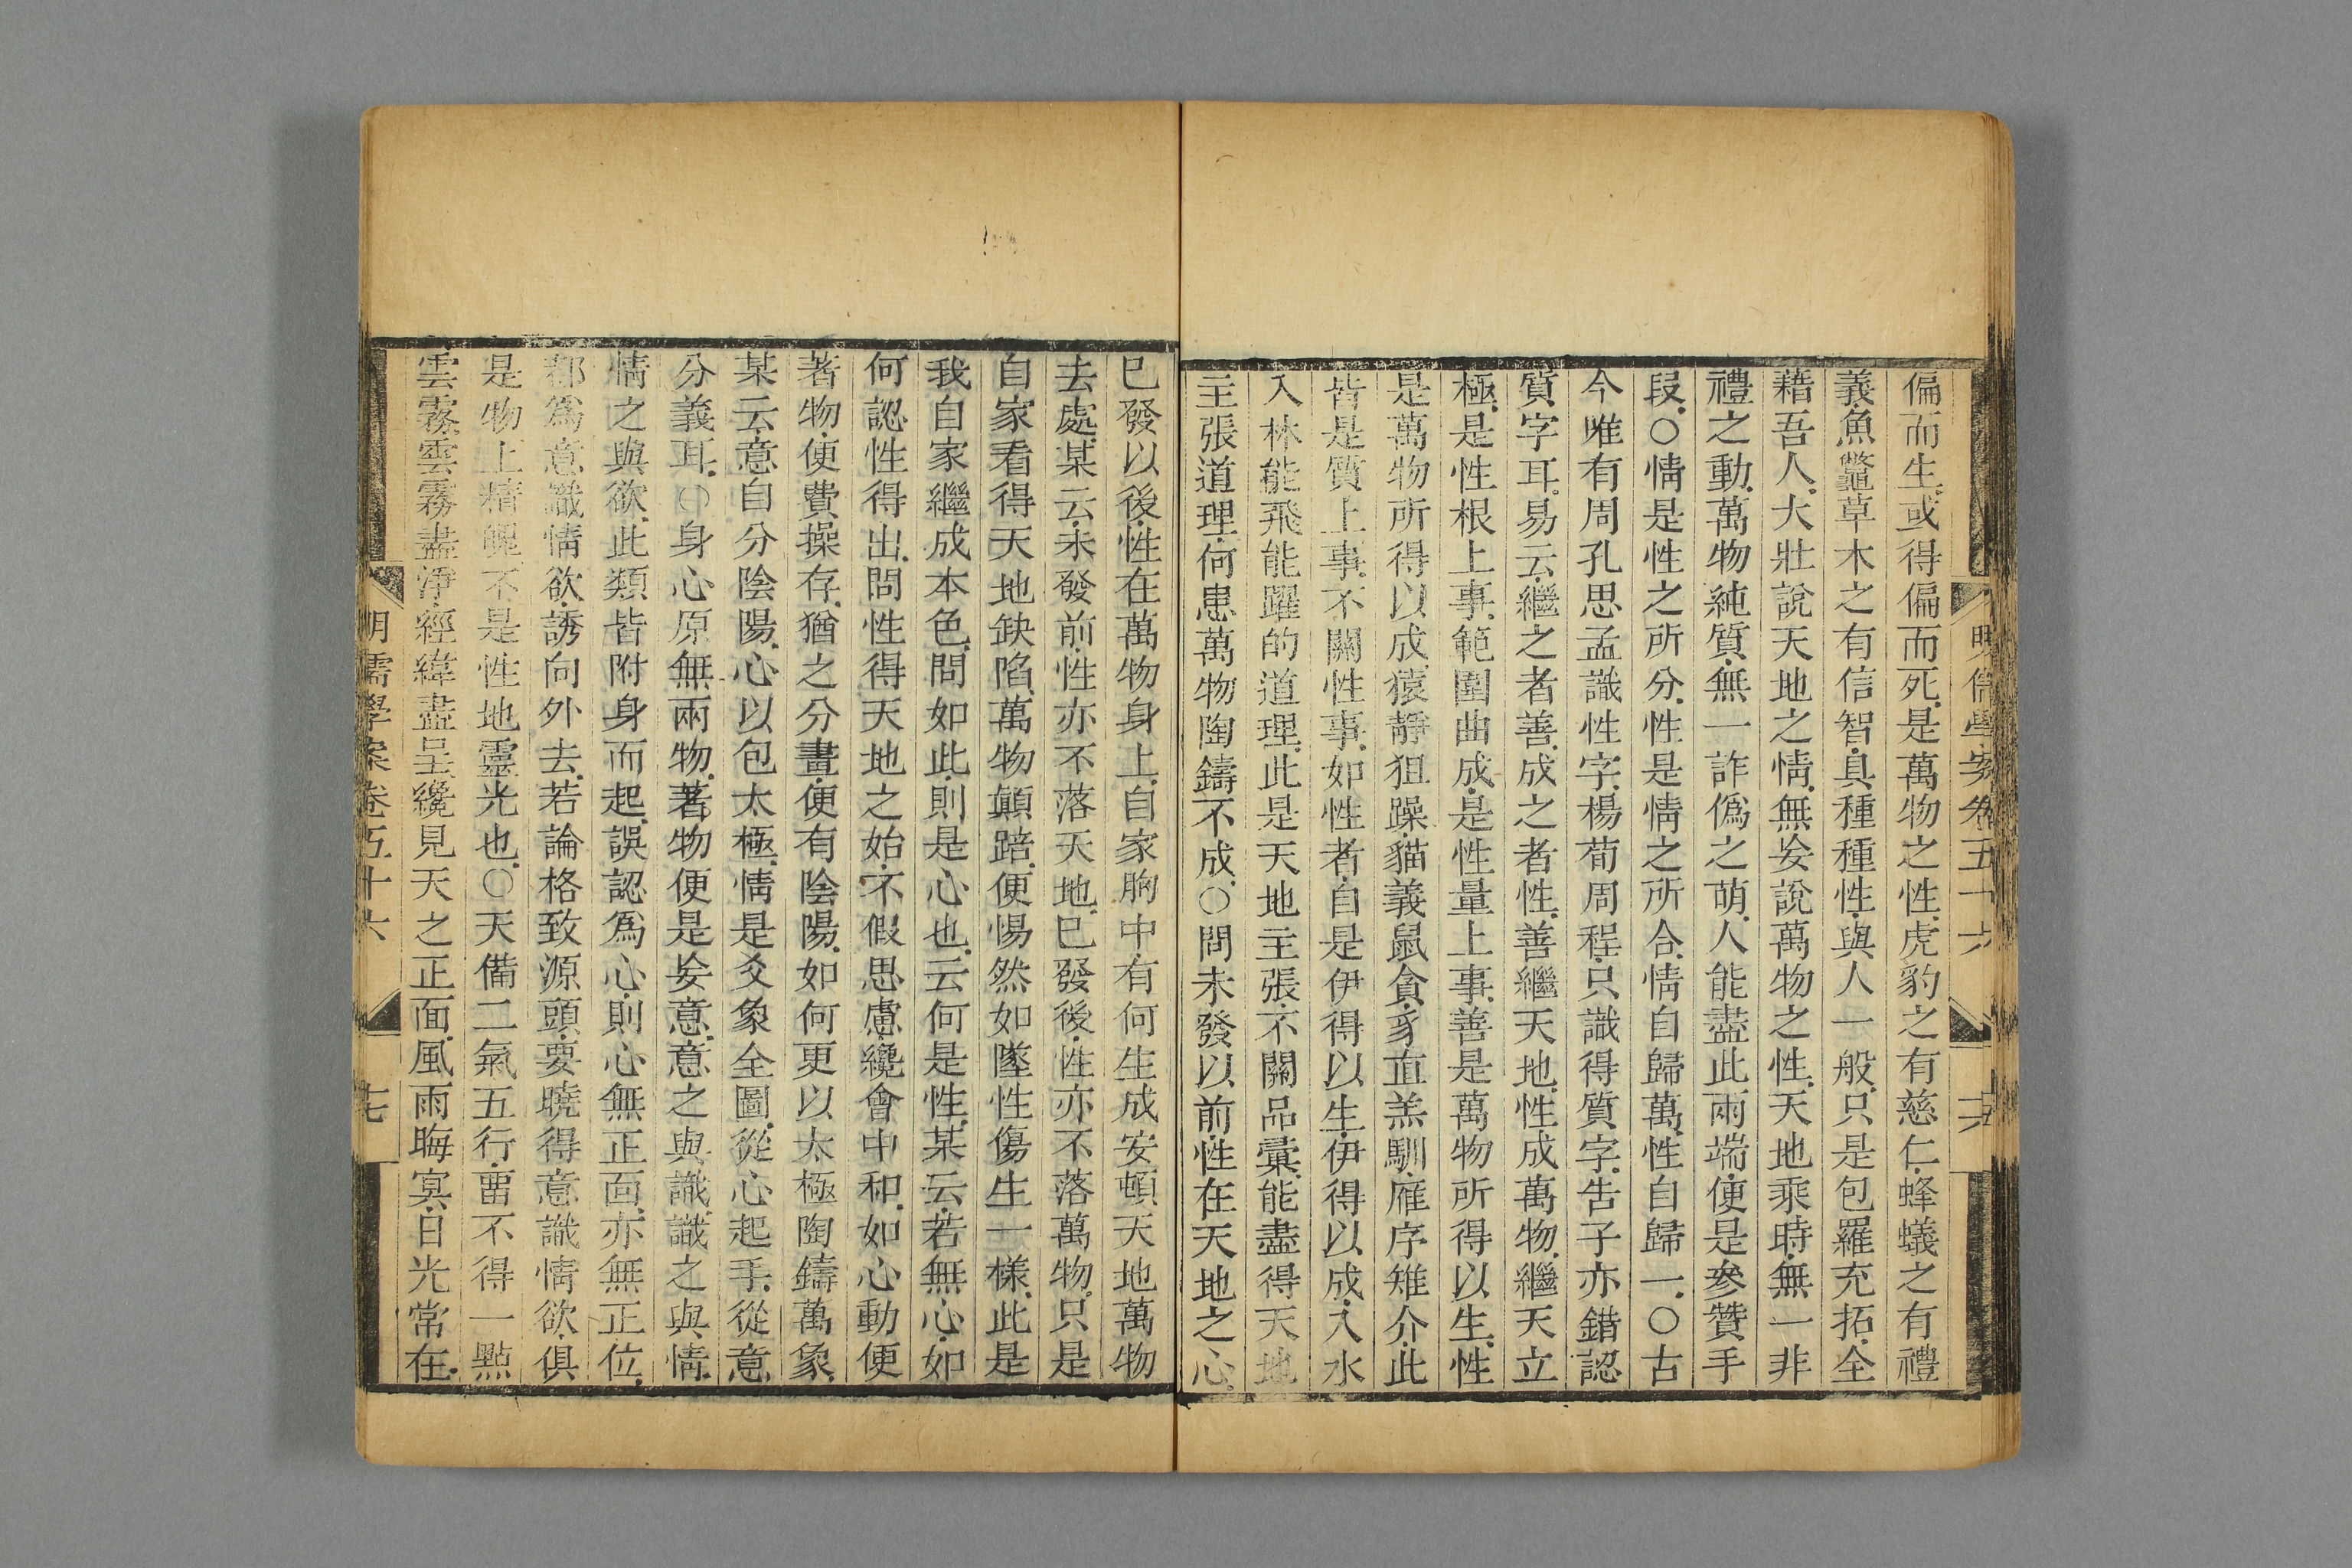 明儒學案卷五十六
十六
偏而生.或得偏而死.是萬物之性.虎豹之有慈仁.蜂蟻之有禮
義.魚鼈草木之有信智.具種種性.與人一般.只是包羅充拓.全
藉吾人.大壯說天地之情.無妄說萬物之性.天地乘時.無一非
禮之動.萬物純質.無一詐僞之萌.人能盡此兩端.便是參贊手
段.○情是性之所分.性是情之所合.情自歸萬.性自歸一.○古
今唯有周孔思孟識性字.楊荀周程.只識得質字.告子亦錯認
質字耳.易云.繼之者善.成之者性.善繼天地.性成萬物.繼天立
極.是性根上事.範圍曲成.是性量上事.善是萬物所得以生.性
是萬物所得以成.猿靜狙躁.貓義鼠貪.豸直羔馴.雁序雉介.此
皆是質上事.不關性事.如性者.自是伊得以生.伊得以成.入水
入林能飛能躍的道理.此是天地主張.不關品彙.能盡得天地
主張道理.何患萬物陶鑄不成.○問未發以前.性在天地之心.
已發以後.性在萬物身上.自家胸中.有何生成安頓天地萬物
去處.某云.未發前.性亦不落天地.已發後.性亦不落萬物.只是
自家看得天地缺陷.萬物顛踣.便惕然如墜性傷生一樣.此是
我自家繼成本色.問如此.則是心也.云何是性.某云.若無心.如
何認性得出.問性得天地之始.不假思慮.纔會中和.如心動便
著物.便費操存.猶之分畫.便有陰陽.如何更以太極陶鑄萬象.
某云.意自分陰陽.心以包太極.情是爻象全圖.從心起手.從意
分義耳.○身心原無兩物.著物便是妄意.意之與識.識之與情.
情之與欲.此類皆附身而起.誤認爲心.則心無正面.亦無正位.
都爲意識情欲.誘向外去.若論格致源頭.要曉得意識情欲.俱
是物上精魄.不是性地靈光也.○天備二氣五行.畱不得一點
雲霧.雲霧盡淨.經緯盡呈.纔見天之正面.風雨晦冥.日光常在.
明儒學案卷五十六